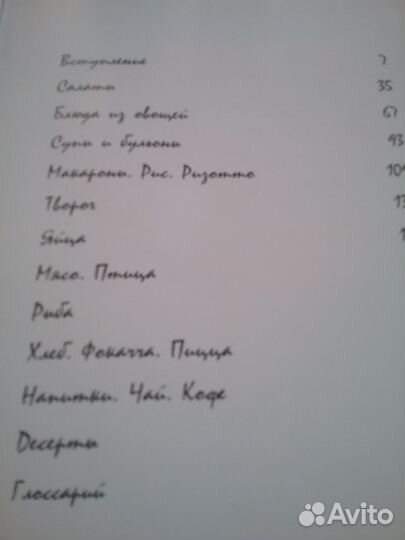 Вступление 7
Салаты 35
Блюда из овощей 67
Супы и бульоны 93
Макароны. Рис. Ризотто
Творог
Яйца
Мясо. Птица
Рыба
Хлеб. Фокачча. Пицца
Напитки. Чай. Кофе
Десерты
Глоссарий
Avito